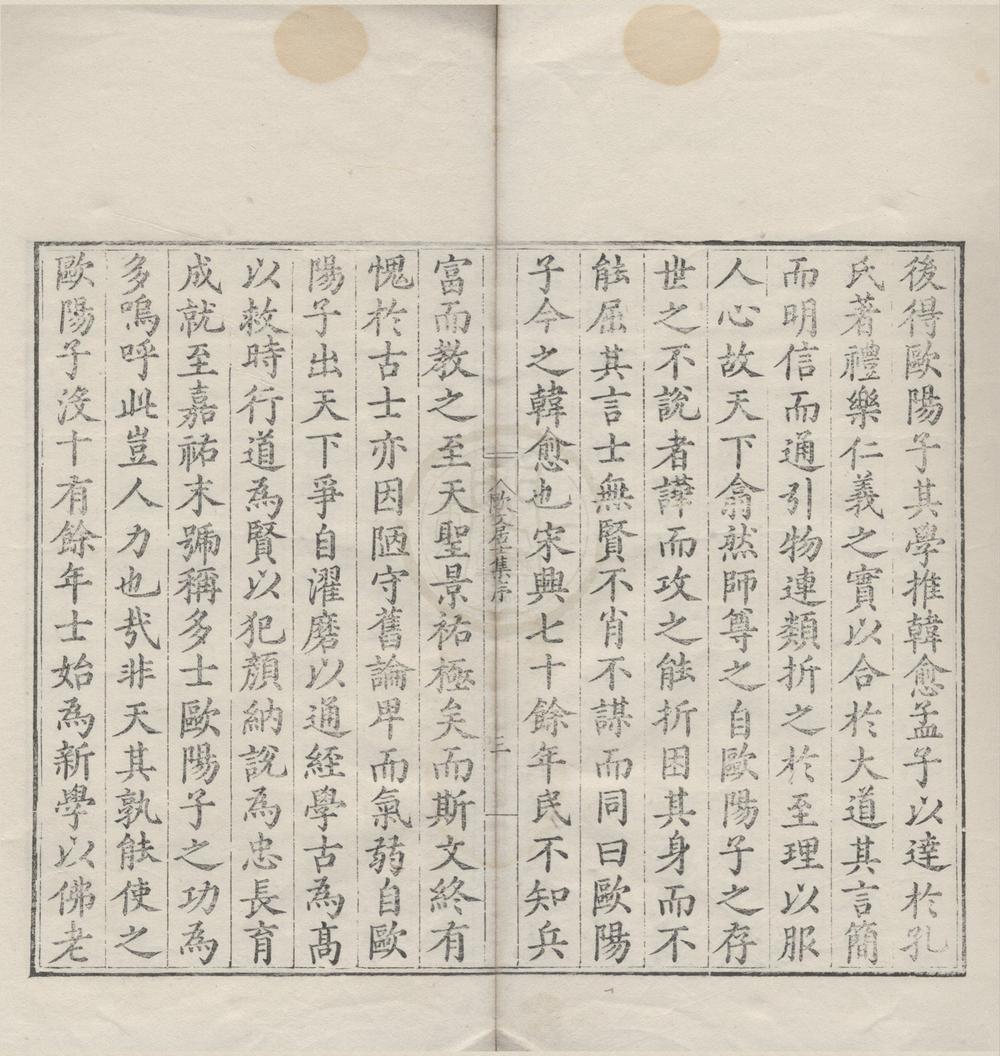 後得歐陽子其學推韓愈孟子以達於孔
氏著禮樂仁義之實以合於大道其言簡
而明信而通引物連類折之於至理以服
人心故天下翕然師尊之自歐陽子之存
世之不說者譁而攻之能折困其身而不
能屈其言士無賢不肖不謀而同曰歐陽
子今之韓愈也宋興七十餘年民不知兵
歐文居士集序
三
富而教之至天聖景祐極矣而斯文終有
愧於古士亦因陋守舊論卑而氣弱自歐
陽子出天下爭自濯磨以通經學古為高
以救時行道為賢以犯顏納說為忠長育
成就至嘉祐末號稱多士歐陽子之功為
多嗚呼此豈人力也哉非天其孰能使之
歐陽子沒十有餘年士始為新學以佛老